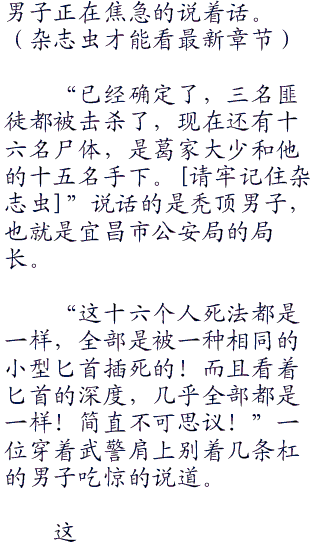 男子正在焦急的说着话。
（杂志虫才能看最新章节）
“已经确定了，三名匪
徒都被击杀了，现在还有十
六名尸体，是葛家大少和他
的十五名手下。[请牢记住杂
志虫]”说话的是秃顶男子，
也就是宜昌市公安局的局
长。
“这十六个人死法都是
一样，全部是被一种相同的
小型匕首插死的！而且看着
匕首的深度，几乎全部都是
一样！简直不可思议！”一
位穿着武警肩上别着几条杠
的男子吃惊的说道。
这